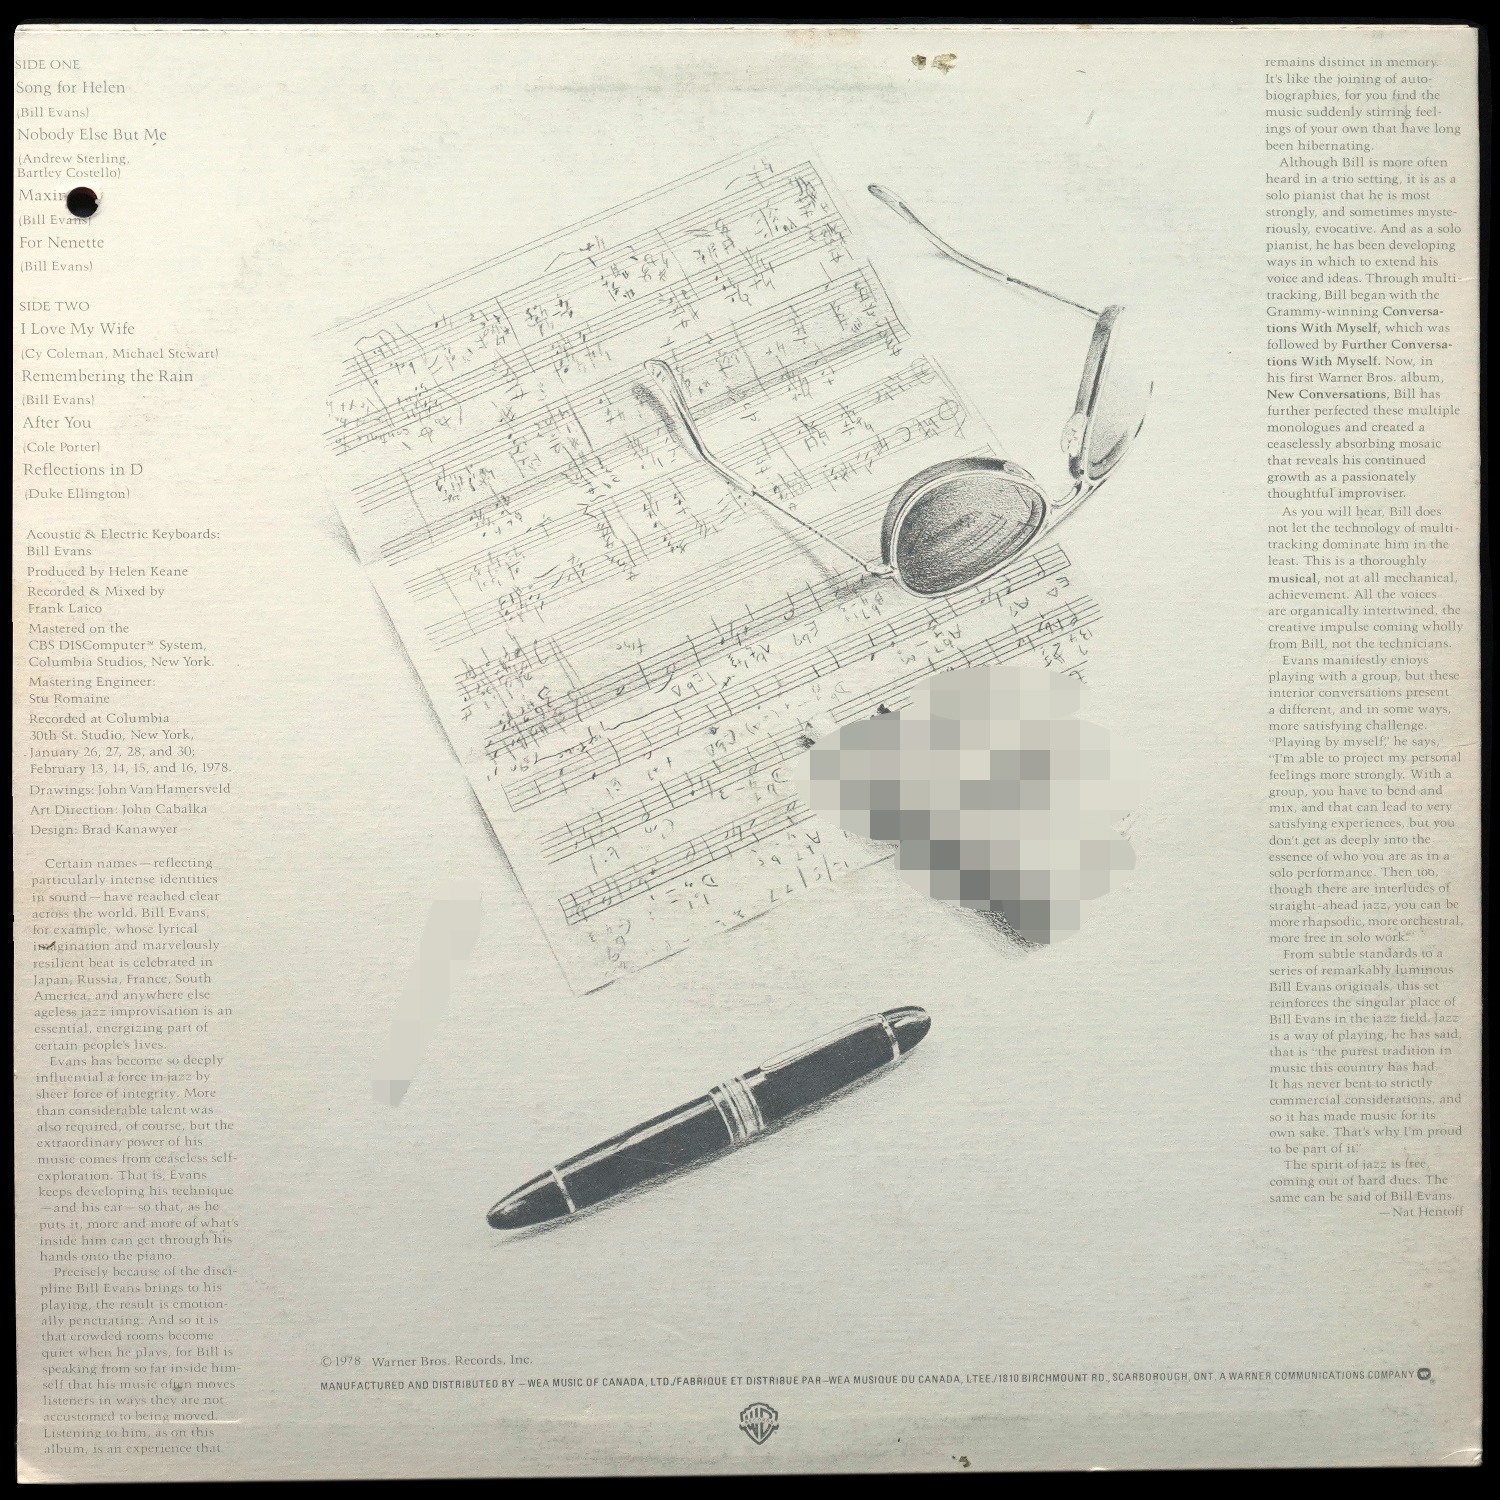 SIDE ONE
Song for Helen
(Bill Evans)
Nobody Else But Me
(Andrew Sterling,
Bartley Costello)
(Bill Evans)
For Nenette
(Bill Evans)
SIDE TWO
I Love My Wife
(Cy Coleman, Michael Stewart)
Remembering the Rain
(Bill Evans)
After You
(Cole Porter)
Reflections in D
(Duke Ellington)
Acoustic & Electric Keyboards:
Bill Evans
Produced by Helen Keane
Recorded & Mixed by
Frank Laico
Mastered on the
CBS DISComputer™ System,
Columbia Studios, New York.
Mastering Engineer:
Stu Romaine
Recorded at Columbia
30th St. Studio, New York,
January 26, 27, 28, and 30;
February 13, 14, 15, and 16, 1978.
Drawings: John Van Hamersveld
Art Direction: John Cabalka
Design: Brad Kanawyer
Certain names—reflecting
particularly intense identities
in sound—have reached clear
across the world. Bill Evans,
for example, whose lyrical
imagination and marvelously
resilient beat is celebrated in
Japan, Russia, France, South
America, and anywhere else
ageless jazz improvisation is an
essential, energizing part of
certain people's lives.
Evans has become so deeply
influential a force in jazz by
sheer force of integrity. More
than considerable talent was
also required, of course, but the
extraordinary power of his
music comes from ceaseless self-
exploration. That is, Evans
keeps developing his technique
—and his ear—so that, as he
puts it, more and more of what's
inside him can get through his
hands onto the piano.
Precisely because of the disci-
pline Bill Evans brings to his
playing, the result is emotion-
ally penetrating. And so it is
that crowded rooms become
quiet when he plays, for Bill is
speaking from so far inside him-
self that his music often moves
listeners in ways they are not
accustomed to being moved.
Listening to him, as on this
album, is an experience that
remains distinct in memory.
It's like the joining of auto-
biographies, for you find the
music suddenly stirring feel-
ings of your own that have long
been hibernating.
Although Bill is more often
heard in a trio setting, it is as a
solo pianist that he is most
strongly, and sometimes myste-
riously, evocative. And as a solo
pianist, he has been developing
ways in which to extend his
voice and ideas. Through multi-
tracking, Bill began with the
Grammy-winning Conversa-
tions With Myself, which was
followed by Further Conversa-
tions With Myself. Now, in
his first Warner Bros. album,
New Conversations, Bill has
further perfected these multiple
monologues and created a
ceaselessly absorbing mosaic
that reveals his continued
growth as a passionately
thoughtful improviser.
As you will hear, Bill does
not let the technology of multi-
tracking dominate him in the
least. This is a thoroughly
musical, not at all mechanical,
achievement. All the voices
are organically intertwined, the
creative impulse coming wholly
from Bill, not the technicians.
Evans manifestly enjoys
playing with a group, but these
interior conversations present
a different, and in some ways,
more satisfying challenge.
"Playing by myself," he says,
"I'm able to project my personal
feelings more strongly. With a
group, you have to bend and
mix, and that can lead to very
satisfying experiences, but you
don't get as deeply into the
essence of who you are as in a
solo performance. Then too,
though there are interludes of
straight-ahead jazz, you can be
more rhapsodic, more orchestral,
more free in solo work."
From subtle standards to a
series of remarkably luminous
Bill Evans originals, this set
reinforces the singular place of
Bill Evans in the jazz field. Jazz
is a way of playing, he has said,
that is "the purest tradition in
music this country has had.
It has never bent to strictly
commercial considerations, and
so it has made music for its
own sake. That's why I'm proud
to be part of it."
The spirit of jazz is free,
coming out of hard dues. The
same can be said of Bill Evans.
—Nat Hentoff
©1978 Warner Bros. Records, Inc.
MANUFACTURED AND DISTRIBUTED BY—WEA MUSIC OF CANADA, LTD./FABRIQUE ET DISTRIBUE PAR—WEA MUSIQUE DU CANADA, LTEE./1810 BIRCHMOUNT RD., SCARBOROUGH, ONT. A WARNER COMMUNICATIONS COMPANY